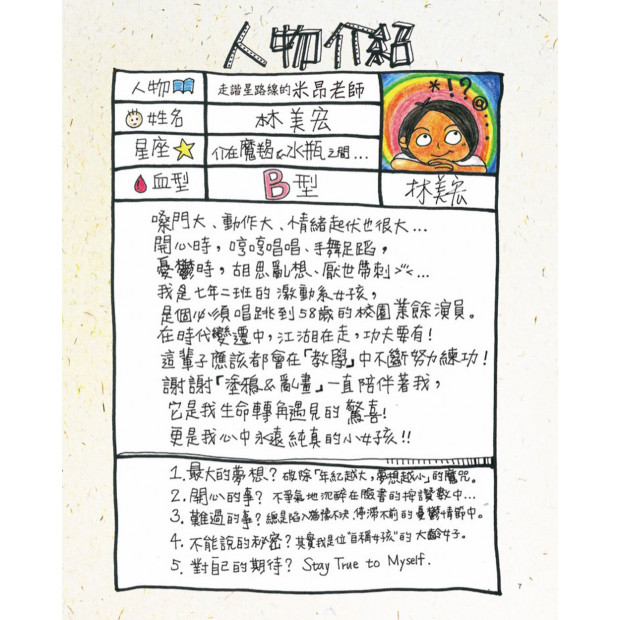 人物介紹
人物 走諧星路線的米昂老師
姓名 林美宏
星座 介在魔羯&水瓶之間...
血型 B型
*!?@...
林美宏
嗓門大、動作大、情緒起伏也很大...
開心時，哼哼唱唱、手舞足蹈，
憂鬱時，胡思亂想、厭世帶刺
我是七年二班的激動系女孩，
是個必須唱跳到58歲的校園業餘演員。
在時代變遷中，江湖在走，功夫要有！
這輩子應該都會在「教學」中不斷努力練功！
謝謝「塗鴉&亂畫」一直陪伴著我，
它是我生命轉角遇見的驚喜！
更是我心中永遠純真的小女孩！！
1. 最大的夢想？破除「年紀越大，夢想越小」的魔咒。
2. 開心的事？不爭氣地沉醉在臉書的按讚數中...
3. 難過的事？總是陷入猶豫不決、停滯不前的憂鬱情節中。
4. 不能說的秘密？其實我是位"自稱女孩"的大齡女子。
5. 對自己的期待？Stay True to Myself.
7